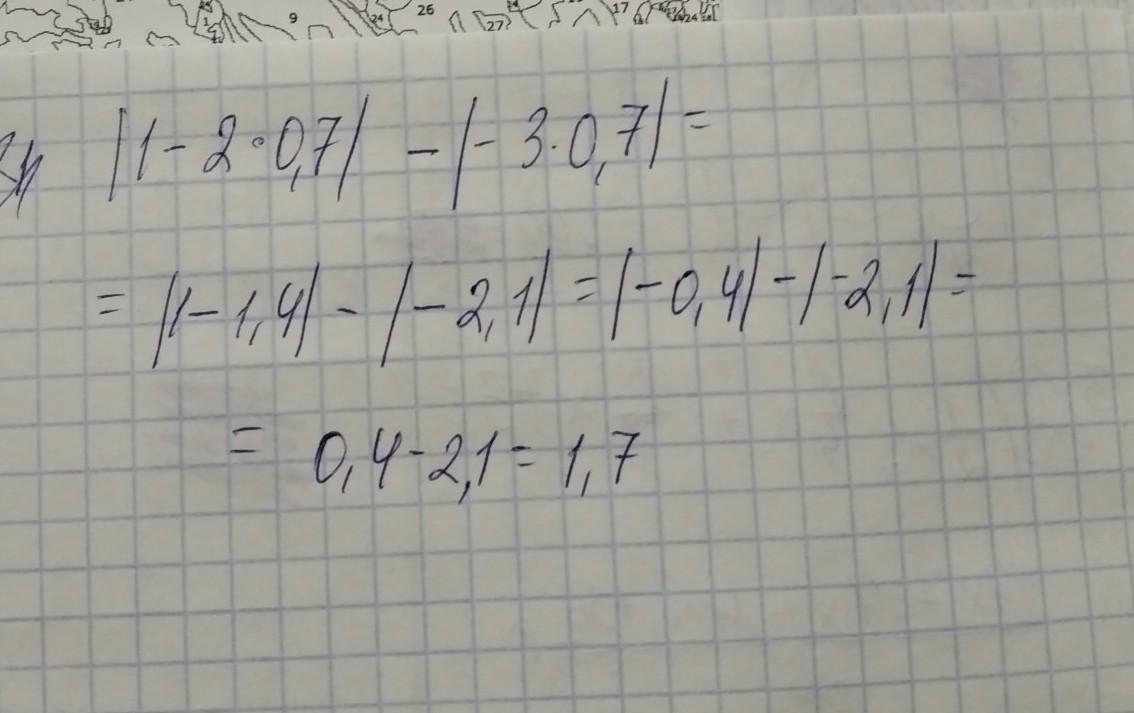 9 24 26 27 17 24
|1 - 2·0,7| - |- 3·0,7| =
= |1 - 1,4| - |- 2,1| = |-0,4| - |-2,1| =
= 0,4 - 2,1 = 1,7